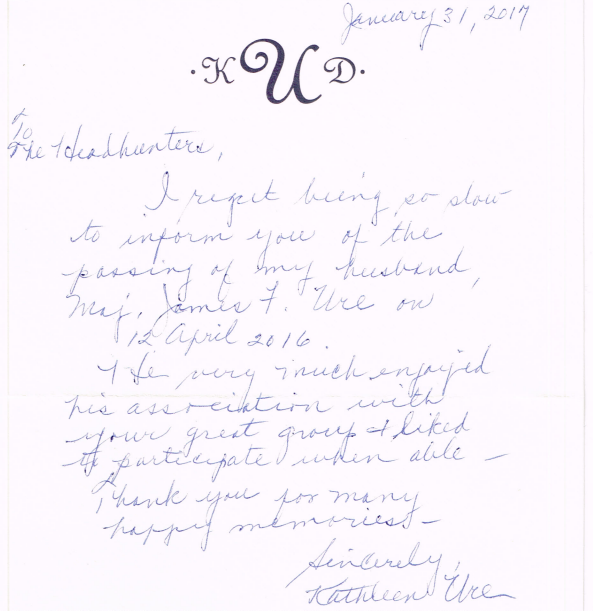 January 31, 2017
· K U D ·
To
The Headhunters,
I regret being so slow
to inform you of the
passing of my husband,
Maj. James F. Ure on
12 April 2016.
He very much enjoyed
his association with
your great group & liked
to participate when able –
Thank you for many
happy memories –
Sincerely,
Kathleen Ure